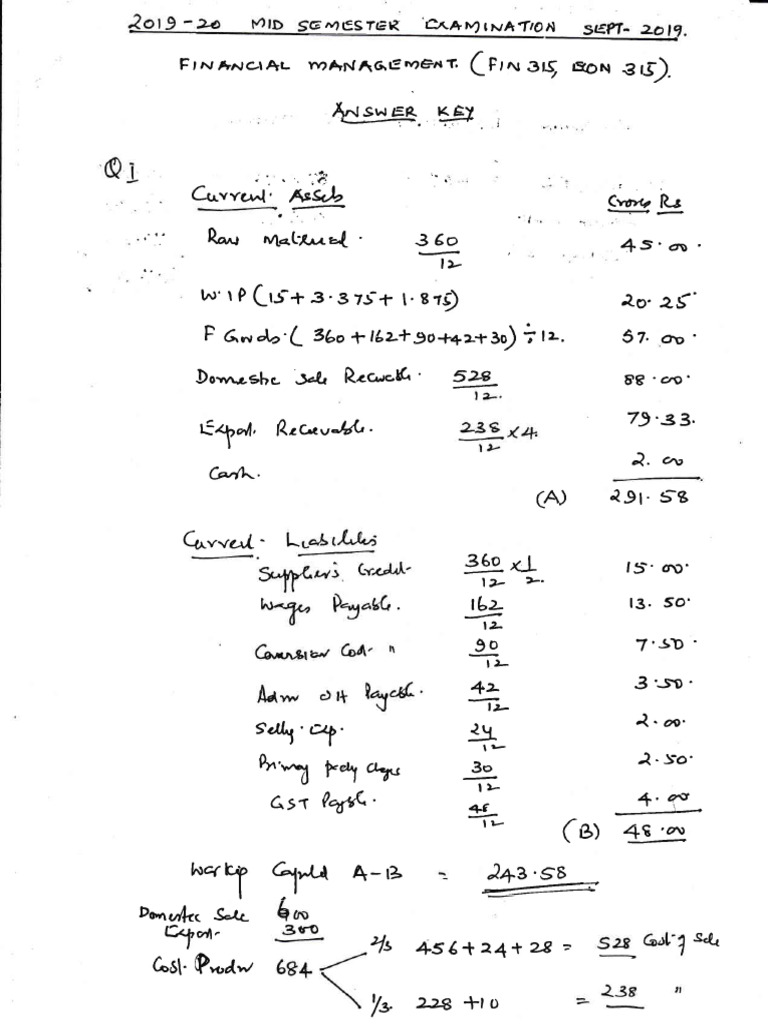 2019-20 MID SEMESTER EXAMINATION SEPT-2019.
FINANCIAL MANAGEMENT. (FIN 315, ECON 315).
ANSWER KEY
Q1
Current Assets Crores Rs
Raw Material. 360/12 45.00.
W.I.P (15+3.375+1.875) 20.25
F Goods.( 360+162+90+42+30) ÷12. 57.00.
Domestic Sale 528/12. 88.00.
Export. Receivable. 238/12 ×4. 79.33.
Cash. 2.00
(A) 291.58
Current Liabilities
Suppliers Credit 360/12 × 1/2. 15.00.
Wages Payable. 162/12 13.50
Conversion Cost " 90/12 7.50.
Adm OH Payable. 42/12 3.50.
Selly. Exp. 24/12 2.00.
Primary 30/12 2.50.
GST 48/12 4.00
(B) 48.00
A-B = 243.58
Domestic Sale 600
Export 300
Cost. Prodn 684
2/3 456+24+28 = 528 Cost of Sale
1/3. 228+10 = 238 "